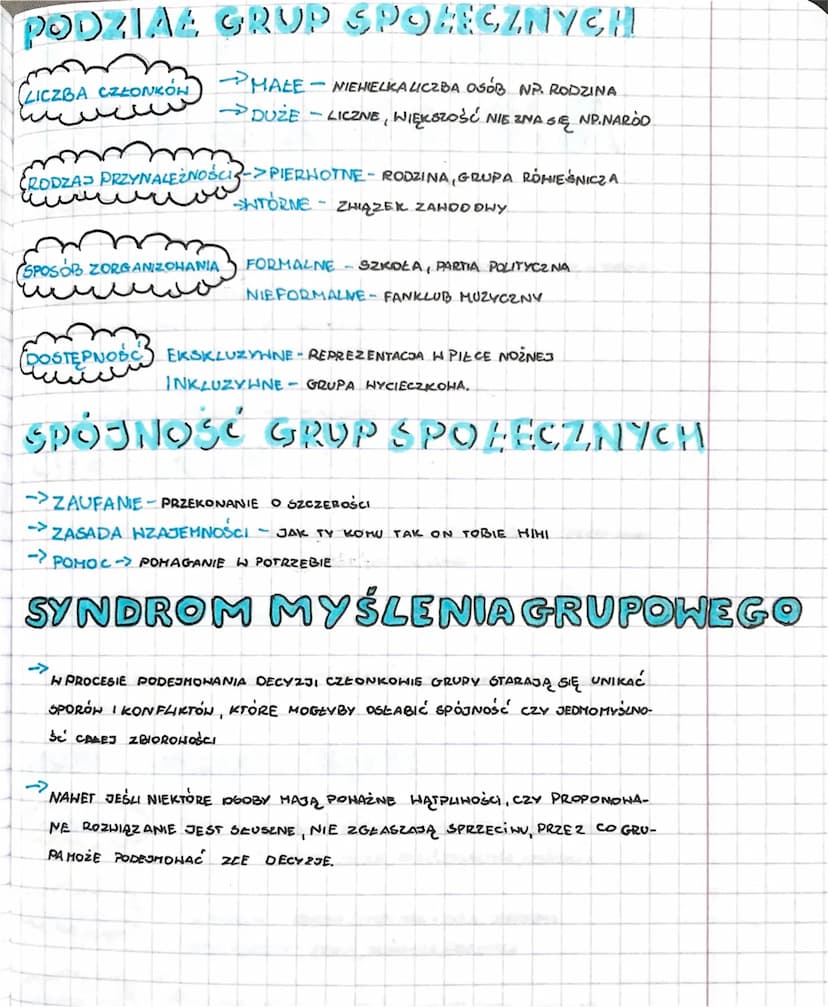 PODZIAŁ GRUP SPOŁECZNYCH
LICZBA CZŁONKÓW -> MAŁE - NIEWIELKA LICZBA OSÓB NP. RODZINA
-> DUŻE - LICZNE, WIĘKSZOŚĆ NIE ZNA SIĘ NP. NARÓD
RODZAJ PRZYNALEŻNOŚCI -> PIERWOTNE - RODZINA, GRUPA RÓWIEŚNICZA
-> WTÓRNE - ZWIĄZEK ZAWODOWY
SPOSÓB ZORGANIZOWANIA FORMALNE - SZKOŁA, PARTIA POLITYCZNA
NIEFORMALNE - FANKLUB MUZYCZNY
DOSTĘPNOŚĆ EKSKLUZYWNE - REPREZENTACJA W PIŁCE NOŻNEJ
INKLUZYWNE - GRUPA WYCIECZKOWA.
SPÓJNOŚĆ GRUP SPOŁECZNYCH
-> ZAUFANIE - PRZEKONANIE O SZCZEROŚCI
-> ZASADA WZAJEMNOŚCI - JAK TY KOMU TAK ON TOBIE WIWI
-> POMOC -> POMAGANIE W POTRZEBIE
SYNDROM MYŚLENIA GRUPOWEGO
-> W PROCESIE PODEJMOWANIA DECYZJI CZŁONKOWIE GRUPY STARAJĄ SIĘ UNIKAĆ
SPORÓW I KONFLIKTÓW, KTÓRE MOGŁYBY OSŁABIĆ SPÓJNOŚĆ CZY JEDNOMYŚLNO-
ŚĆ CAŁEJ ZBIOROWOŚCI
-> NAWET JEŚLI NIEKTÓRE OSOBY MAJĄ POWAŻNE WĄTPLIWOŚCI, CZY PROPONOWA-
NE ROZWIĄZANIE JEST SŁUSZNE, NIE ZGŁASZAJĄ SPRZECIWU, PRZEZ CO GRU-
PA MOŻE PODEJMOWAĆ ZŁE DECYZJE.